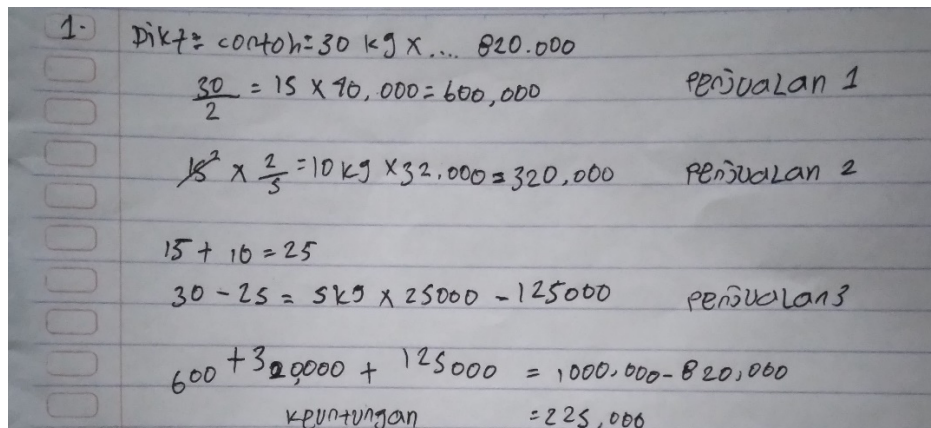 1. Dikt = contoh = 30 kg x ... 820.000
30/2 = 15 x 40,000 = 600,000 Penjualan 1
15² x 2/5 = 10 kg x 32.000 = 320,000 Penjualan 2
15 + 10 = 25
30 - 25 = 5kg x 25000 - 125000 Penjualan 3
600 + 320,000 + 125000 = 1000,000 - 820,000
Kpuntungan = 225,000